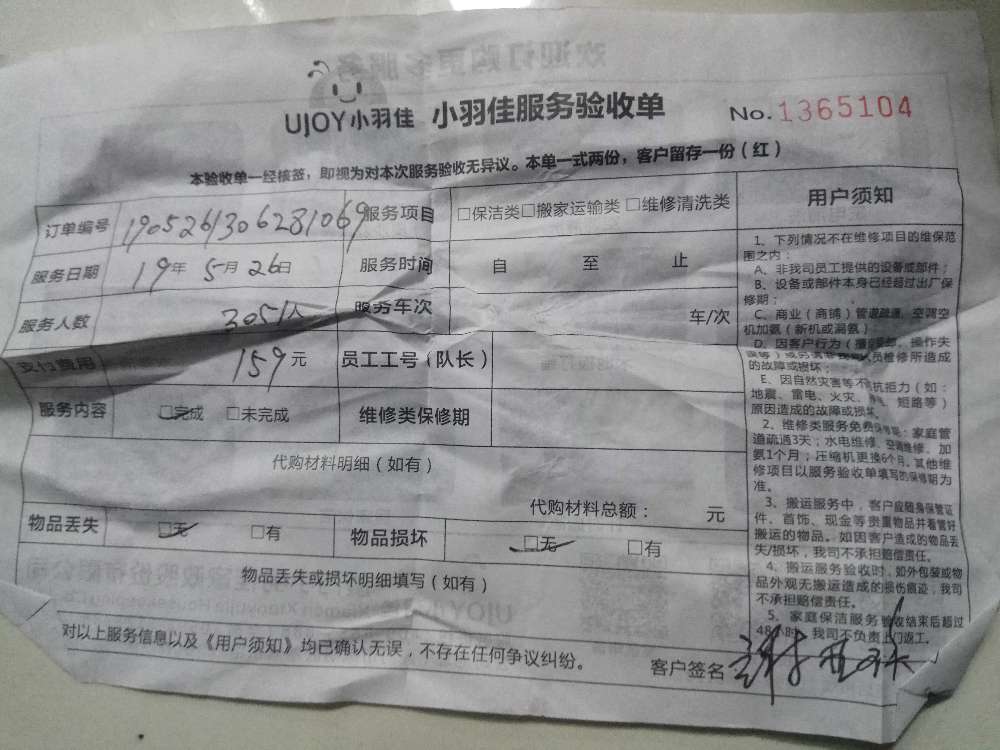 UJOY小羽佳 小羽佳服务验收单 No.1365104
本验收单一经核签，即视为对本次服务验收无异议。本单一式两份，客户留存一份（红）
订单编号 1905261306281069 服务项目 □保洁类□搬家运输类 □维修清洗类
服务日期 19年 5月 26日 服务时间 自 至 止
服务人数 服务车次 车/次
支付费用 159元 员工工号（队长）
服务内容 □完成 □未完成 维修类保修期
代购材料明细（如有）
代购材料总额： 元
物品丢失 □无 □有 物品损坏 □无 □有
物品丢失或损坏明细填写（如有）
对以上服务信息以及《用户须知》均已确认无误，不存在任何争议纠纷。
客户签名
用户须知
1、下列情况不在维修项目的维保范
围之内：
A、非我司员工提供的设备或部件；
B、设备或部件本身已经超过出厂保
修期；
C、商业（商铺）管道疏通、空调空
机加氨（新机或漏氨）
D、因客户行为（ 操作失
员检修所造成
的故障或损坏；
E、因自然灾害等不 抗拒力（如：
地震、雷电、火灾、 短路等）
原因造成的故障或损坏。
2、维修类服务免费保修期：家庭管
道疏通3天；水电维修、空调维修、加
氨1个月；压缩机更换6个月。其他维
修项目以服务验收单填写的保修期为
准。
3、搬运服务中，客户应随身保管证
件、首饰、现金等贵重物品并看管好
搬运的物品。如因客户造成的物品丢
失/损坏，我司不承担赔偿责任。
4、搬运服务验收时，如外包装或物
品外观无搬运造成的损伤痕迹，我司
不承担赔偿责任。
5、家庭保洁服务验收结束后超过
48小时，我司不负责上门返工。